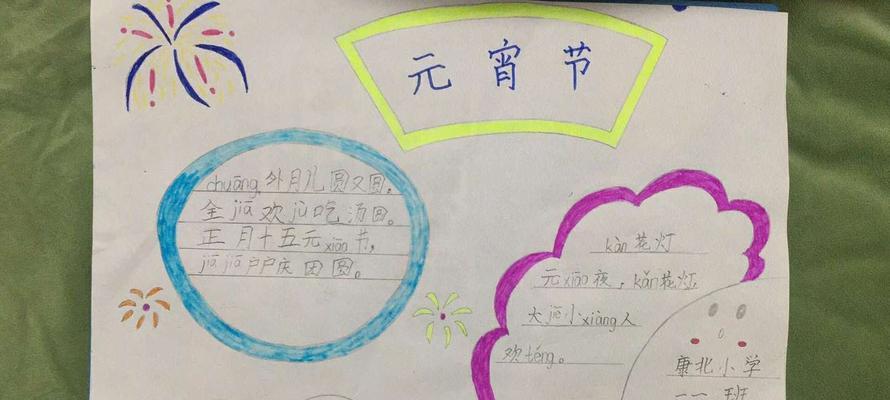 元宵节
chuāng外月儿圆又圆。
全jiā欢jù吃汤圆。
正月十五元xiāo节，
jiā jiā户户庆团圆。
kàn花灯
元xiāo夜，kǎn花灯
大jiē小xiàng人
欢téng。
康北小学
一一班